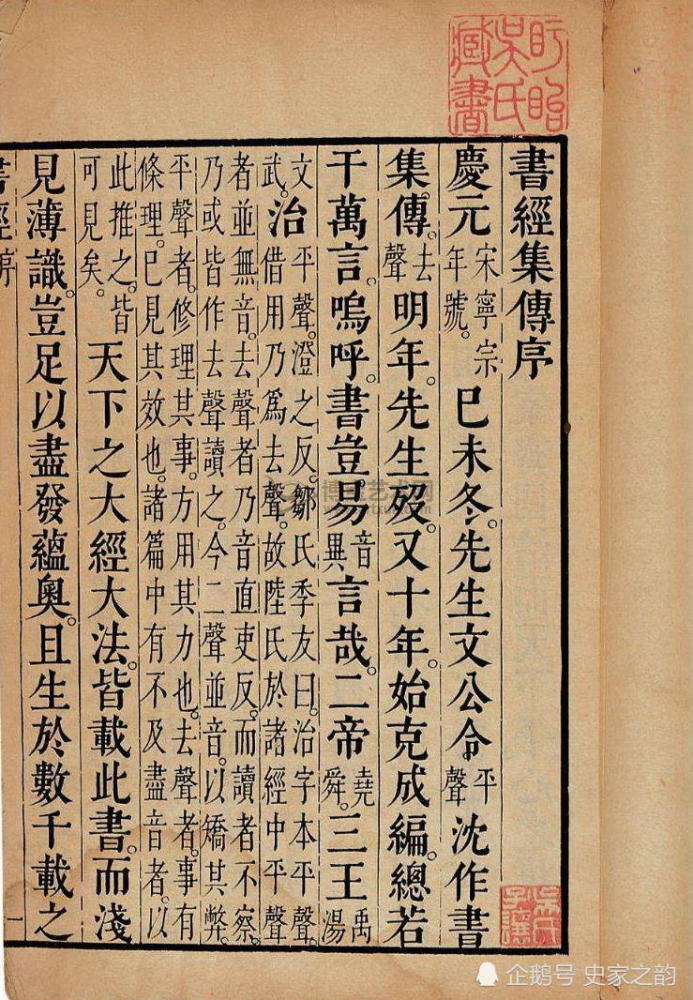 盱眙吳氏藏書
書經集傳序
慶元宋寧宗年號。巳未冬。先生文公令平聲沈作書
集傳。去聲明年。先生歿。又十年。始克成編。總若
干萬言。嗚呼。書豈易音異言哉。二帝堯舜。三王禹湯
文武。治平聲。澄之反。鄒氏季友曰。治字本平聲
借用乃爲去聲。故陸氏於諸經中平聲
者並無音。去聲者乃音直吏反。而讀者不察。
乃或皆作去聲讀之。今二聲並音。以矯其弊。
平聲者。修理其事。方用其力也。去聲者。事有
條理。已見其效也。諸篇中有不及盡音者。以
此推之。皆可見矣。天下之大經大法。皆載此書。而淺
見薄識。豈足以盡發蘊奧。且生於數千載之
書經序 一
企鹅号 史家之韵